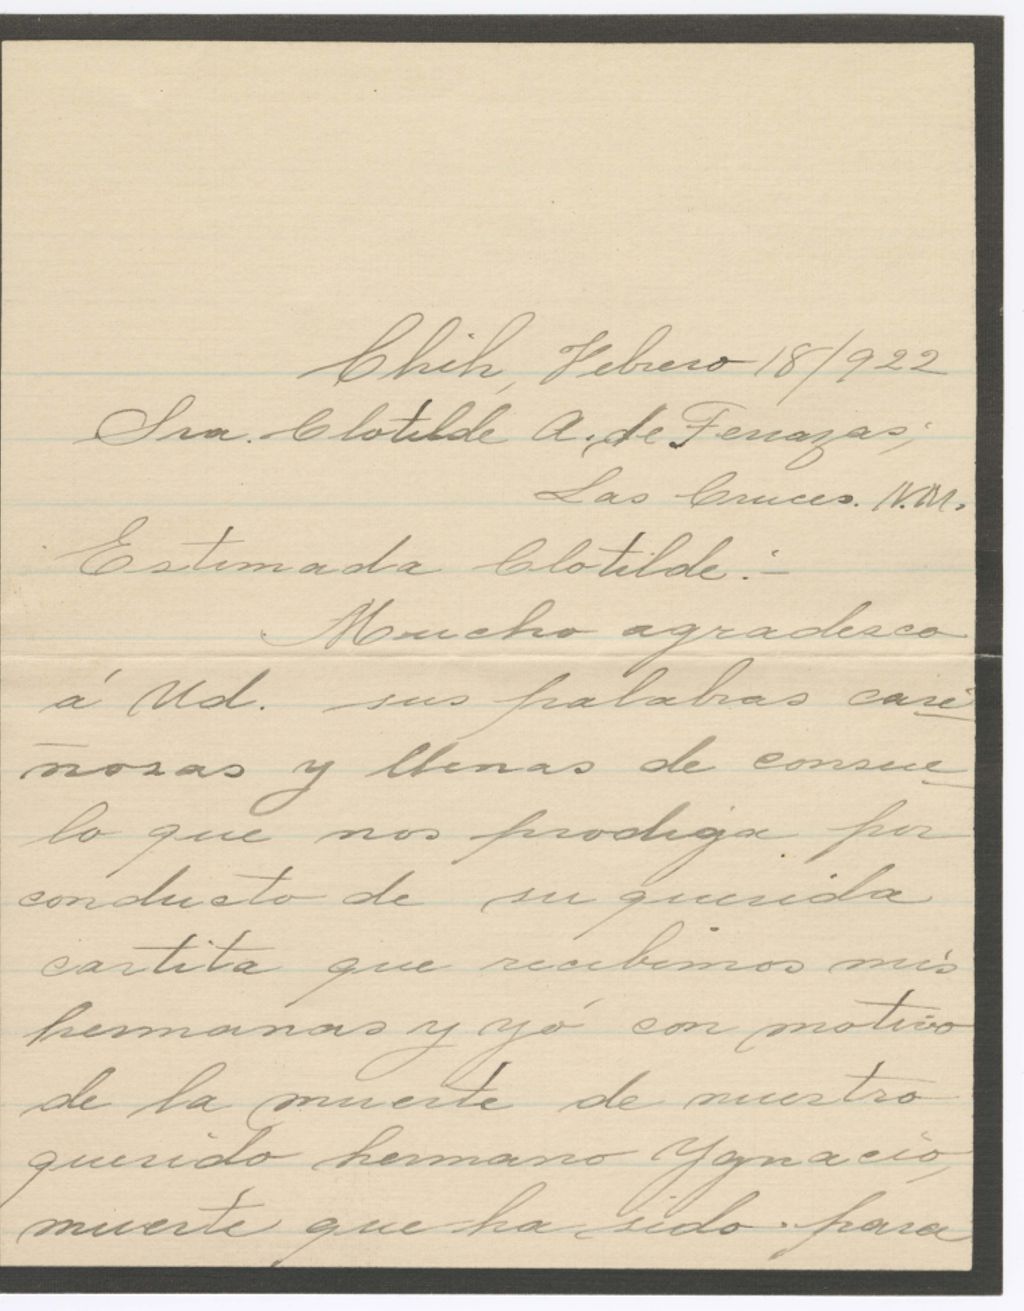 Chih, Febrero 18/922
Sra. Clotilde A. de Terrazas,
Las Cruces. N.M.
Estimada Clotilde:-
Mucho agradesco
á Ud. sus palabras cari
ñozas y llenas de consue
lo que nos prodiga por
conducto de su querida
cartita que recibimos mis
hermanas y yó con motivo
de la muerte de nuestro
querido hermano Ygnacio,
muerte que ha sido para